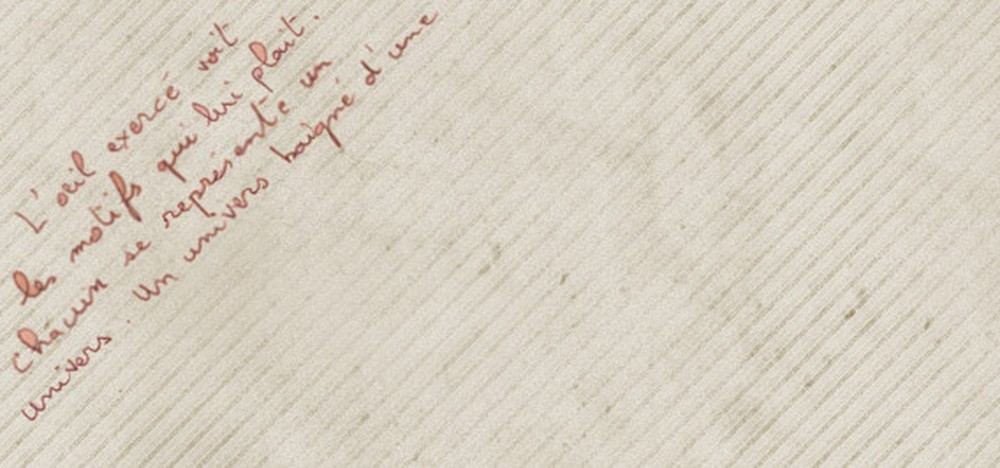 L'œil exercé voit
les motifs qui lui plait.
Chacun se représente un
univers. Un univers baigné d'une